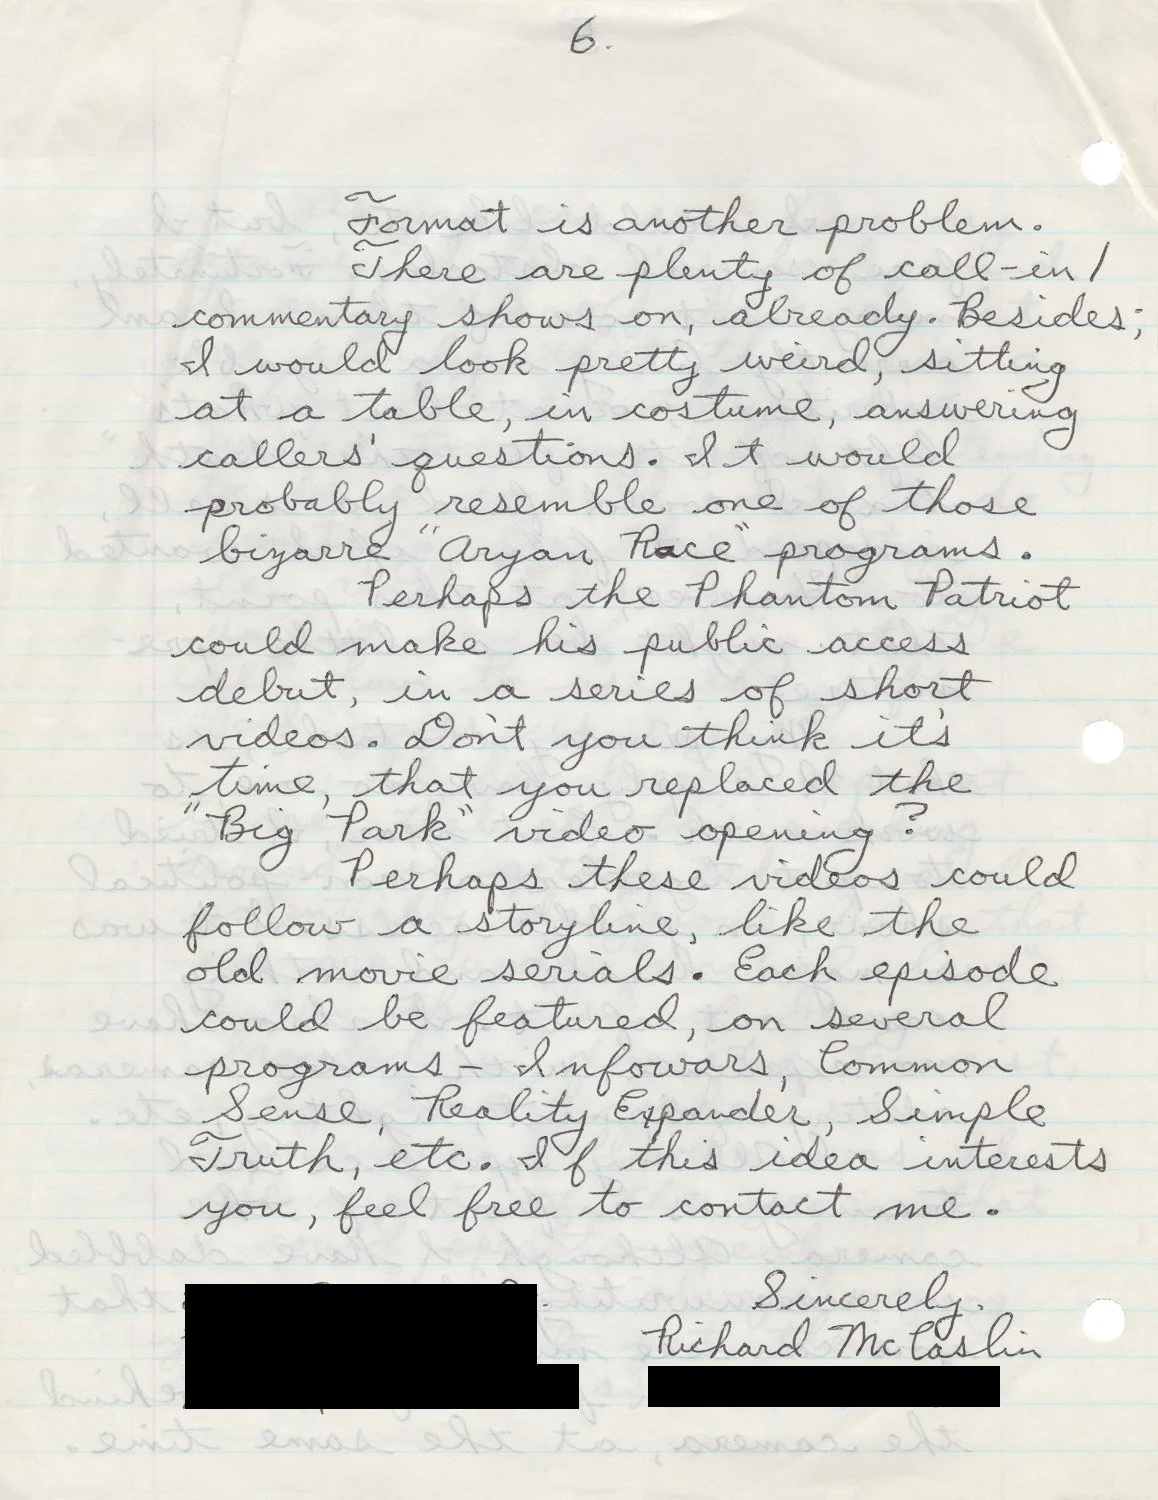 6.
Format is another problem.
There are plenty of call-in/
commentary shows on, already. Besides;
I would look pretty weird, sitting
at a table, in costume, answering
callers' questions. It would
probably resemble one of those
bizarre "Aryan Race" programs.
Perhaps the Phantom Patriot
could make his public access
debut, in a series of short
videos. Don't you think it's
time, that you replaced the
"Big Park" video opening?
Perhaps these videos could
follow a storyline, like the
old movie serials. Each episode
could be featured, on several
programs - Infowars, Common
Sense, Reality Expander, Simple
Truth, etc. If this idea interests
you, feel free to contact me.
Sincerely.
Richard McCaslin